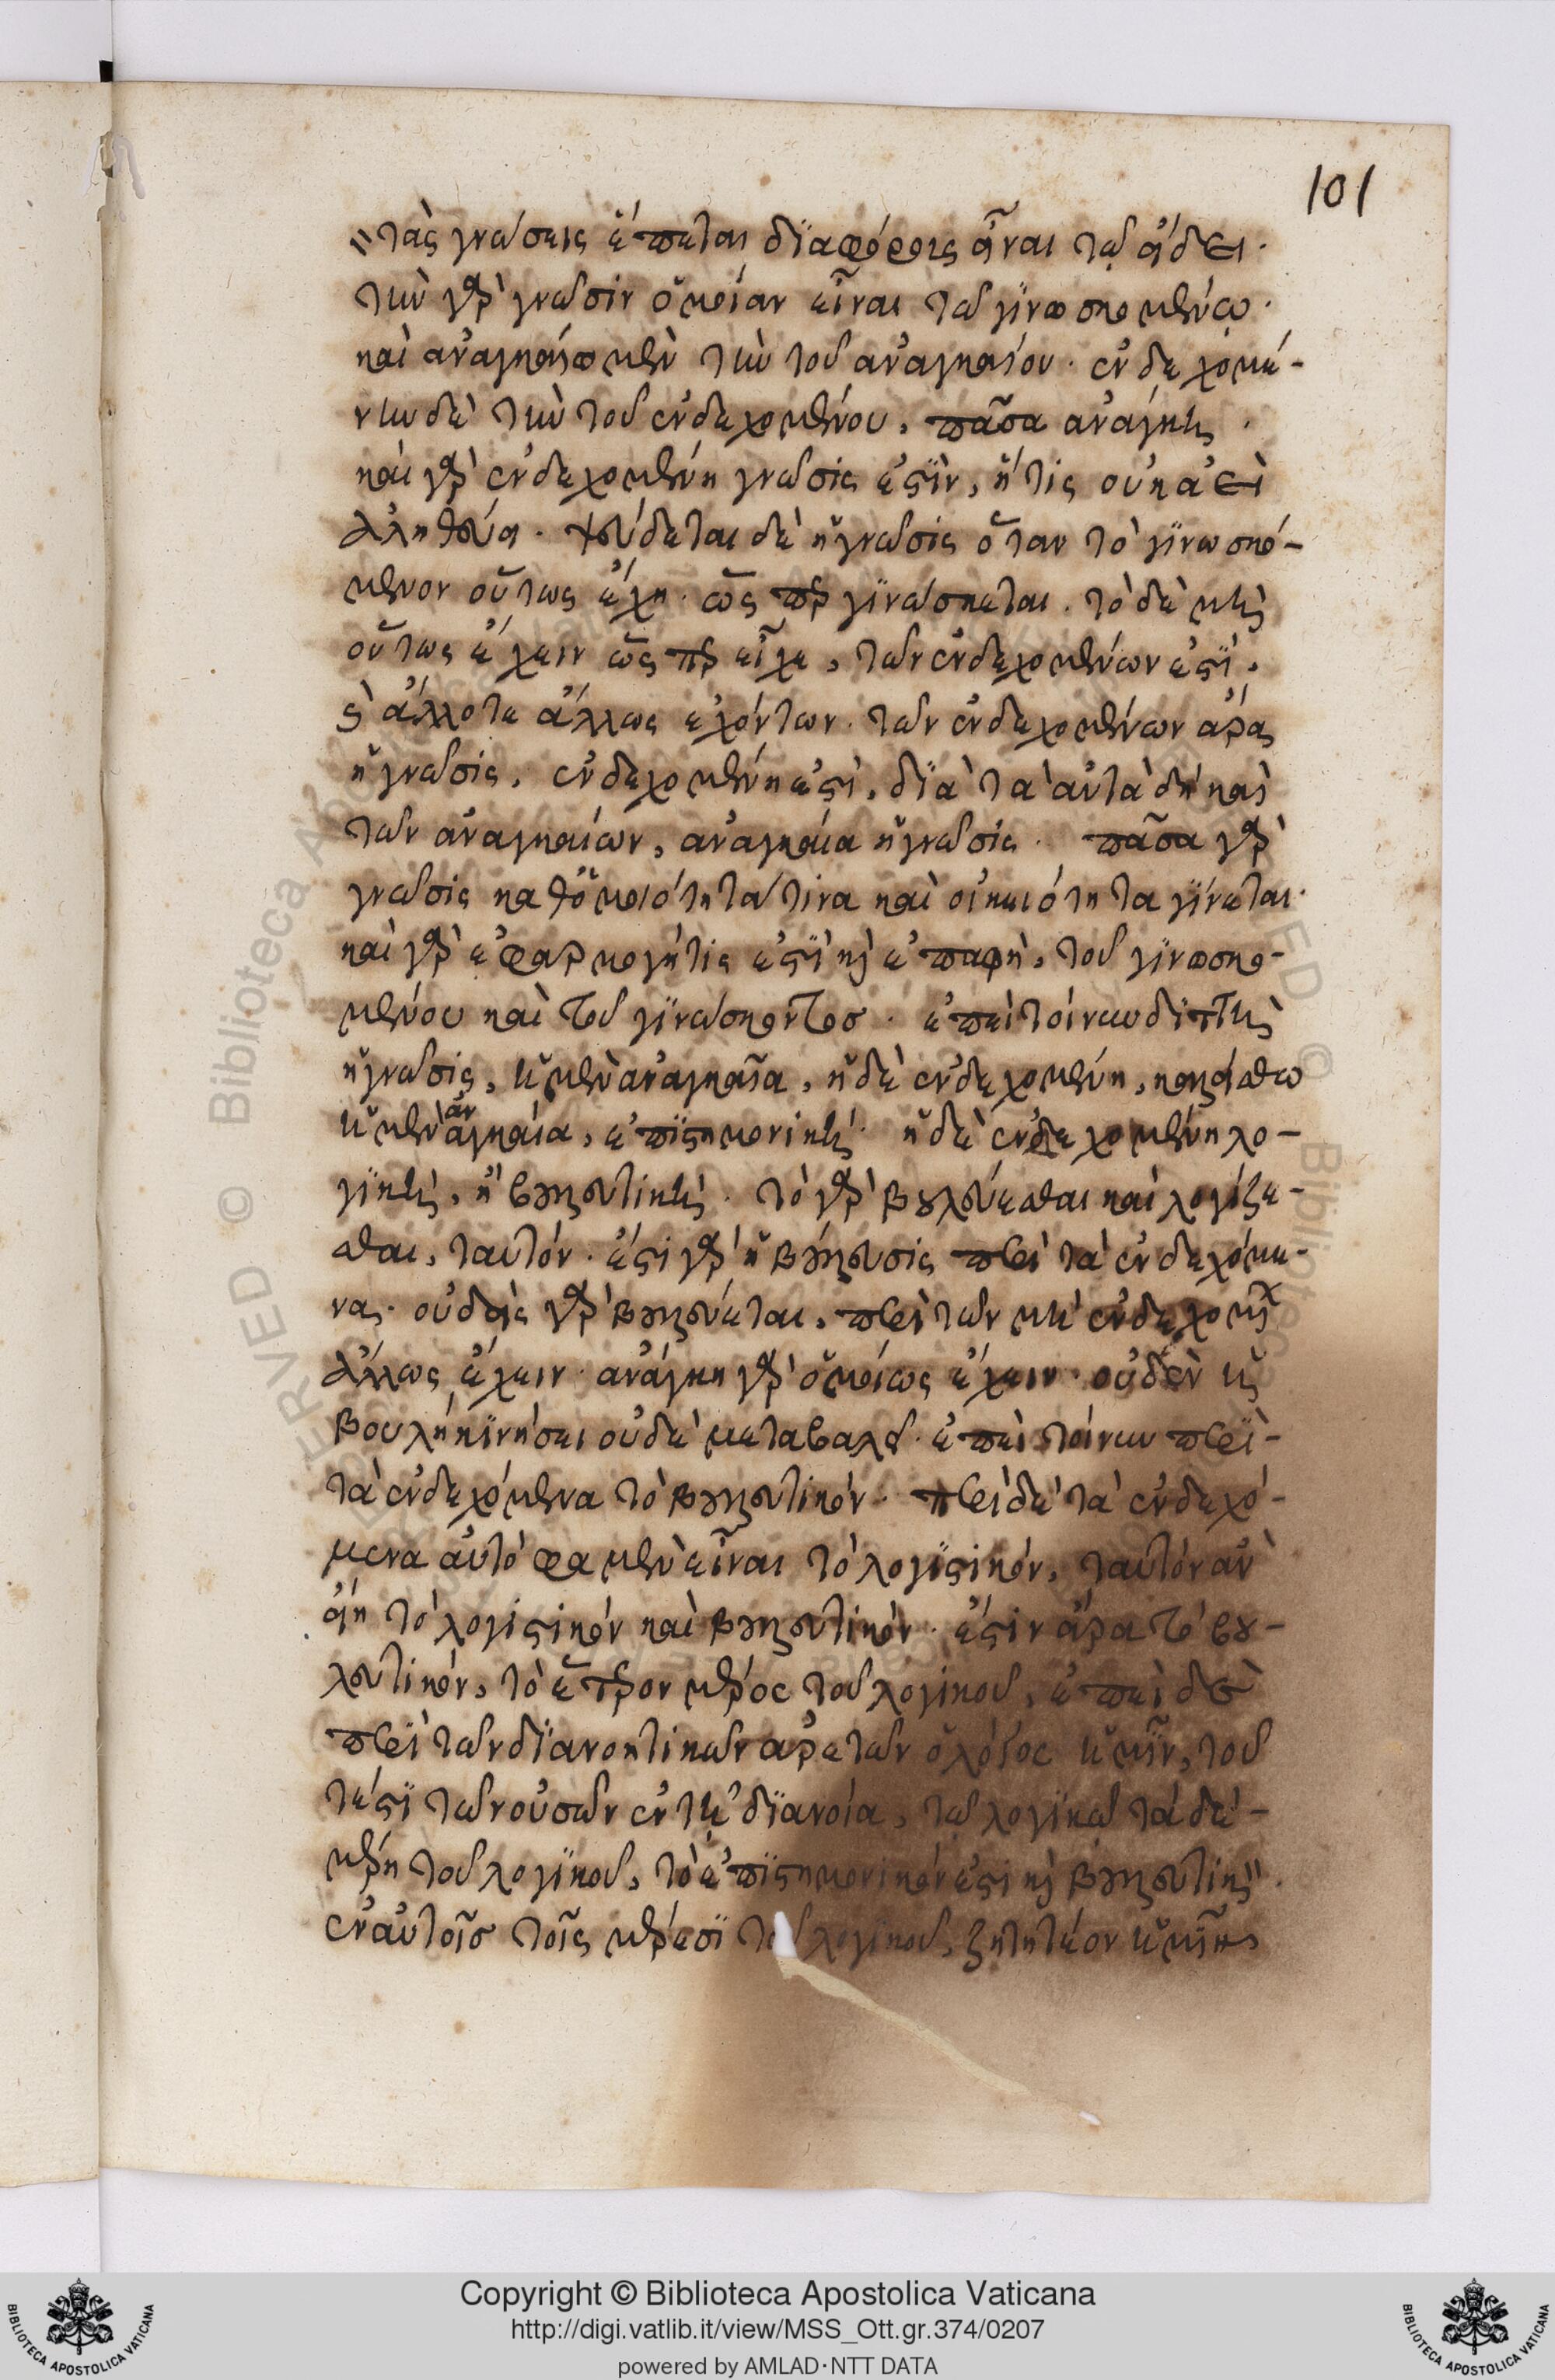 101
τὰς γνώσεις ἕπεται διαφόρους εἶναι τῷ εἴδει·
τὴν γὰρ γνῶσιν ὁμοίαν εἶναι τῷ γινωσκομένῳ·
καὶ ἀναγκαίαν μὲν τὴν τοῦ ἀναγκαίου· ἐνδεχομέ-
νην δὲ τὴν τοῦ ἐνδεχομένου, πᾶσα ἀνάγκη·
καὶ γὰρ ἐνδεχομένη γνῶσίς ἐστιν, ἥτις οὐκ ἀεὶ
ἀληθεύει· ψεύδεται δὲ ἡ γνῶσις ὅταν τὸ γινωσκό-
μενον οὕτως ἔχῃ· ὥσπερ γινώσκεται· τὸ δὲ μὴ
οὕτως ἔχειν ὥσπερ εἶχε, τῶν ἐνδεχομένων ἐστί,
καὶ ἄλλοτε ἄλλως ἐχόντων· τῶν ἐνδεχομένων ἄρα
ἡ γνῶσις, ἐνδεχομένη ἐστὶ, διὰ τὰ αὐτὰ δὴ καὶ
τῶν ἀναγκαίων, ἀναγκαία ἡ γνῶσις· πᾶσα γὰρ
γνῶσις καθ' ὁμοιότητά τινα καὶ οἰκειότητα γίνεται·
καὶ γὰρ ἐφαρμογή τις ἐστὶ καὶ ἐπαφὴ, τοῦ γινωσκο-
μένου καὶ τοῦ γινώσκοντος· ἐπεὶ τοίνυν διττὴ
ἡ γνῶσις, ἡ μὲν ἀναγκαῖα, ἡ δὲ ἐνδεχομένη, καλείσθω
ἡ μὲν ἀναγκαία, ἐπιστημονική· ἡ δὲ ἐνδεχομένη λο-
γικὴ, ἢ βουλευτικὴ· τὸ γὰρ βουλεύεσθαι καὶ λογίζε-
σθαι, ταυτόν· ἔστι γὰρ ἡ βούλευσις περὶ τὰ ἐνδεχόμε-
να· οὐδεὶς γὰρ βουλεύεται, περὶ τῶν μὴ ἐνδεχομένων
ἄλλως ἔχειν· ἀνάγκη γὰρ ὁμοίως ἔχειν· οὐδὲν ἡ
βουλὴ κινήσει οὐδὲ μεταβαλεῖ· ἐπεὶ τοίνυν περὶ
τὰ ἐνδεχόμενα τὸ βουλευτικόν· περὶ δὲ τὰ ἐνδεχό-
μενα αὐτό φαμεν εἶναι τὸ λογιστικόν, ταυτὸν ἂν
εἴη τὸ λογιστικόν καὶ βουλευτικόν· ἔστιν ἄρα τὸ βου-
λευτικόν, τὸ ἕτερον μέρος τοῦ λογικοῦ, ἐπεὶ δὲ
περὶ τῶν διανοητικῶν ἀρετῶν ὁ λόγος ἡμῖν, του
τέστι τῶν οὐσῶν ἐν τῇ διανοίᾳ, τῷ λογικῷ τὰ δὲ
μέρη τοῦ λογικοῦ, τὸ ἐπιστημονικόν ἐστι καὶ βουλευτικὸν·
ἐν αὐτοῖς τοῖς μέρεσι τοῦ λογικοῦ, ζητητέον ἡμῖν
Copyright © Biblioteca Apostolica Vaticana
http://digi.vatlib.it/view/MSS_Ott.gr.374/0207
powered by AMLAD·NTT DATA
BIBLIOTECA APOSTOLICA VATICANA
BIBLIOTECA APOSTOLICA VATICANA